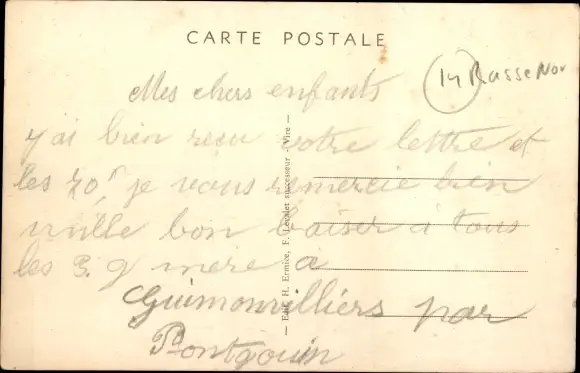 CARTE POSTALE
14 Basse Nor
Mes chers enfants
j'ai bien recu votre lettre et
les 70f, je vous remercie bien
mille bon baiser à tous
les 3. g mere à
Guimonvilliers par
Pontgouin
— Edit. H. Ermice, F. Lecolet successeur - Vire —